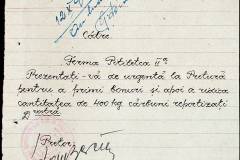 Către
Firma Petiletea II^a
Prezentați-vă de urgență la Pretură
pentru a primi bonuri și apoi a ridica
cantitatea de 400 kg. cărbuni repartizați
Dvoastră
Pretor